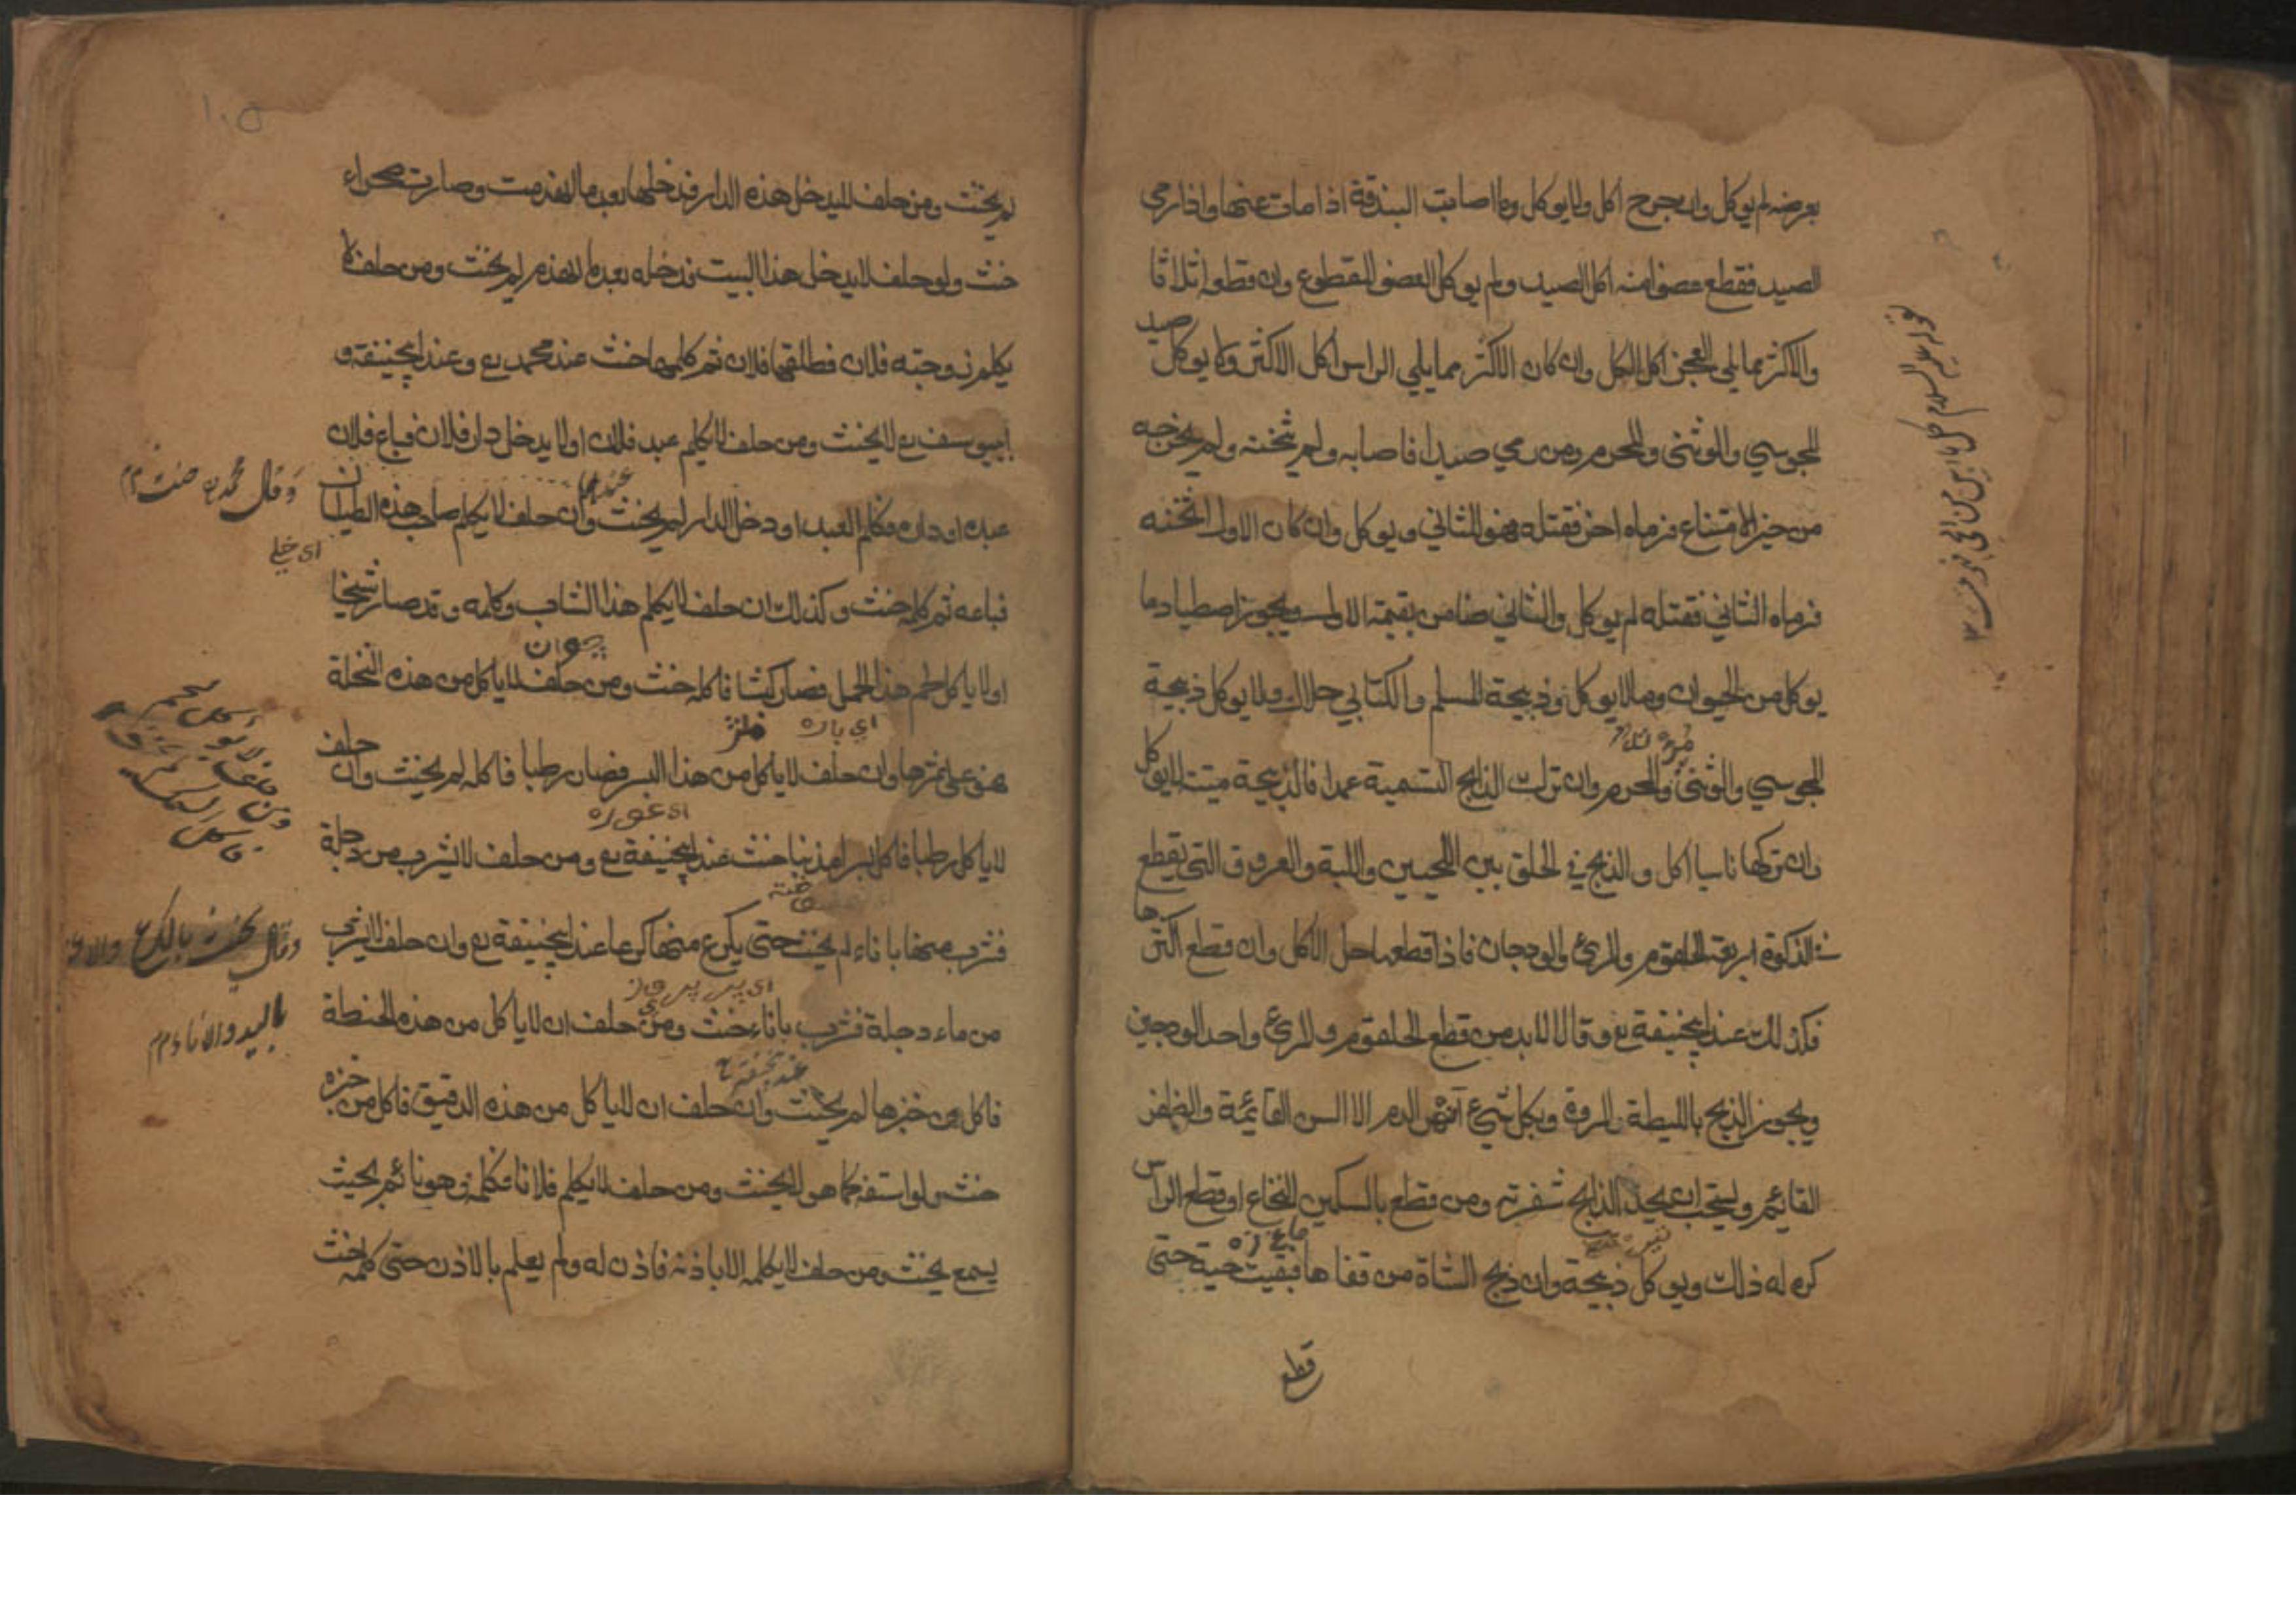 بعرضه لم يوكل وان جرح اكل ولا يوكل وما اصابت البندقة اذا مات عنها واذا رمي
الصيد فقطع عضوا منه اكل الصيد ولم يوكل العضو المقطوع وان قطعه اثلاثا
والاكثر مما يلي العجز اكل الكل وان كان الاكثر مما يلي الراس اكل الاكثر ولا يوكل صيد
المجوسي والوثني والمحرم ومن رمي صيدا فاصابه ولم يثخنه ولم يخرجه
من حيز الامتناع فرماه اخر فقتله فهو للثاني ويوكل وان كان الاول اثخنه
فرماه الثاني فقتله لم يوكل والثاني ضامن بقيمته الاول ويجوز اصطياد ما
يوكل من الحيوان وما لا يوكل وذبيحة المسلم والكتابي حلال ولا يوكل ذبيحة
المجوسي والوثني والمحرم وان ترك الذابح التسمية عمدا فالذبيحة ميتة لا يوكل
وان تركها ناسيا اكل والذبح في الحلق بين اللحيين واللبة والعروق التي يقطع
في الذكوة اربعة الحلقوم والمرئ والودجان فاذا قطعها حل الاكل وان قطع اكثرها
فكذلك عند ابيحنيفة رع وقالا لا بد من قطع الحلقوم والمرئ واحد الودجين
ويجوز الذبح بالليطة والمروة وبكل شيء انهر الدم الا السن القائمة والظفر
القائم ويستحب ان يحد الذابح شفرته ومن قطع بالسكين النخاع او قطع الراس
كره له ذلك ويوكل ذبيحة وان ذبح الشاة من قفاها فبقيت حية حتى
قطع
لم يحنث ومن حلف لا يدخل هذه الدار فدخلها بعد ما انهدمت وصارت صحراء
حنث ولو حلف لا يدخل هذا البيت فدخله بعد ما انهدم لم يحنث ومن حلف لا
يكلم زوجته فلان فطلقها فلان ثم كلمها حنث عند محمد رع وعند ابيحنيفة و
ابيوسف رع لا يحنث ومن حلف لا يكلم عبد فلان او لا يدخل دار فلان فباع فلان
عبده او داره فكلم العبد او دخل الدار لم يحنث وان حلف لا يكلم صاحب هذه الطيلسان
عندهما
وقال محمد رع حنث م
فباعه ثم كلمه حنث وكذلك ان حلف لا يكلم هذا الشاب وكلمه وقد صار شيخا
جوان
او لا ياكل لحم هذا الحمل فصار كبشا فاكله حنث ومن حلف لا ياكل من هذه النخلة
فهو على ثمرها وان حلف لا ياكل من هذا البسر فصار رطبا فاكله لم يحنث وان حلف
اي غوره
لا ياكل رطبا فاكل بسرا مذنبا حنث عند ابيحنيفة رع ومن حلف لا يشرب من دجلة
فشرب منها باناء لم يحنث حتى يكرع منها كرعا عند ابيحنيفة رع وان حلف لا يشرب
من ماء دجلة فشرب باناء حنث ومن حلف ان لا ياكل من هذه الحنطة
باليد والاناء م م
فاكل من خبزها لم يحنث وان حلف ان لا ياكل من هذه الدقيق فاكل من خبزه
حنث ولو استفه كما هو لا يحنث ومن حلف لا يكلم فلانا فكلمه وهو نائم بحيث
يسمع يحنث ومن حلف لا يكلمه الا باذنه فاذن له ولم يعلم بالاذن حتى كلمه حنث